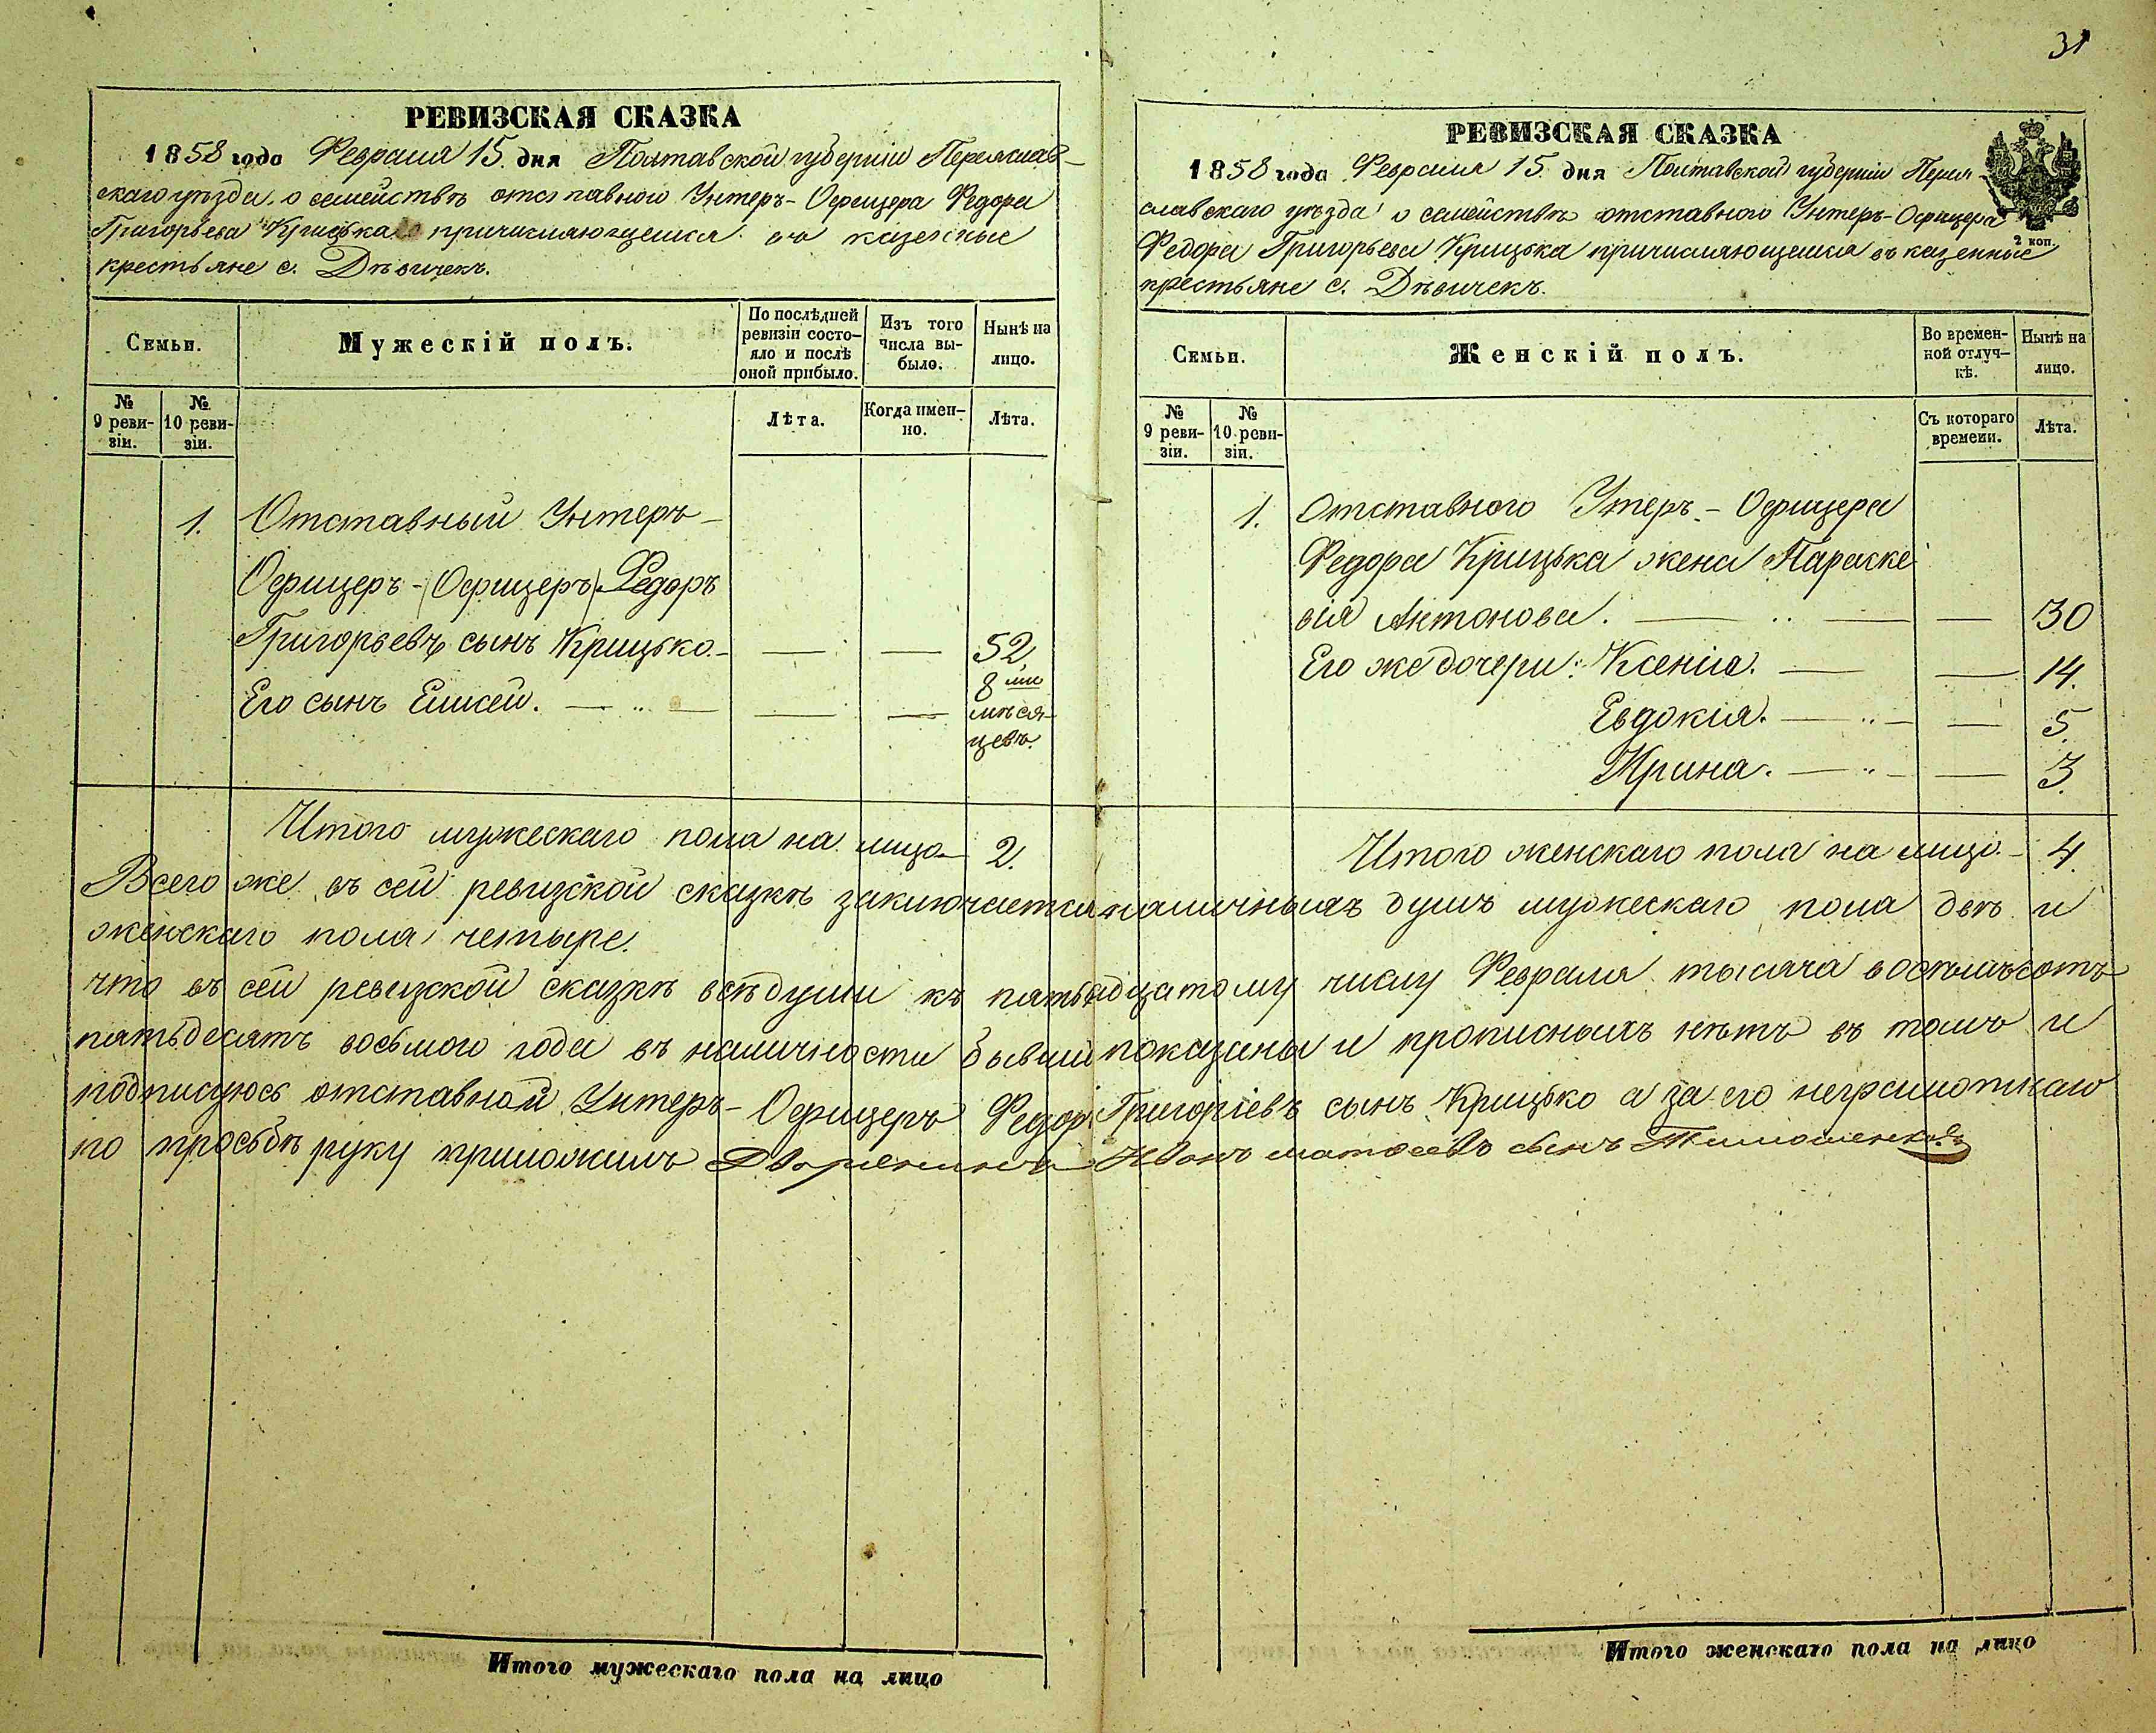 31
РЕВИЗСКАЯ СКАЗКА
1858 года Февраля 15. дня Полтавской губерніи Переяслав-
скаго уѣзда, о семействѣ отставного Унтеръ-Офицера Федора
Григорьева Крицька причисляющемся въ казенные
крестьяне с. Дѣвичекъ.
Семьи.
Мужескій полъ.
По послѣдней
ревизіи состо-
яло и послѣ
оной прибыло.
Изъ того
числа вы-
было.
Нынѣ на
лицо.
№
9 реви-
зіи.
№
10 реви-
зіи.
Лѣта.
Когда имен-
но.
Лѣта.
1. Отставный Унтеръ-
Офицеръ-(Офицеръ) Федоръ
Григорьевъ сынъ Крицько. — — 52
Его сынъ Елисей. — „ — — — 8 ми
мѣся-
цевъ.
Итого мужескаго пола на лицо — 2.
РЕВИЗСКАЯ СКАЗКА
1858 года Февраля 15. дня Полтавской губерніи Перея-
славскаго уѣзда о семействѣ отставного Унтеръ-Офицера
2 коп.
Федора Григорьева Крицька причисляющемся въ казенные
крестьяне с. Дѣвичекъ.
Семьи.
Женскій полъ.
Во времен-
ной отлуч-
кѣ.
Нынѣ на
лицо.
№
9 реви-
зіи.
№
10 реви-
зіи.
Съ котораго
времени.
Лѣта.
1. Отставного Утеръ-Офицера
Федора Крицька жена Параске
вія Антонова. — „ — — 30
Его же дочери: Ксенія. — — 14.
Евдокія. — „ — — 5.
Ирина. — „ — — 3.
Итого женскаго пола на лицо. — 4.
Всего же въ сей ревизской сказкѣ заключается наличныхъ душъ мужескаго пола двѣ и
женскаго пола четыре.
что въ сей ревизской сказкѣ всѣ души къ пятнадцатому числу Февраля тысяча восемьсотъ
пятьдесятъ восьмого года въ наличности бывшіи показаны и прописныхъ нѣтъ въ томъ и
подписуюсь отставной Унтеръ-Офицеръ Федоръ Григоріевъ сынъ Крицько а за его неграмотнаго
по просьбѣ руку приложилъ Дворянинъ Иванъ матвеевъ сынъ Тимошенко
Итого мужескаго пола на лицо
Итого женскаго пола на лицо